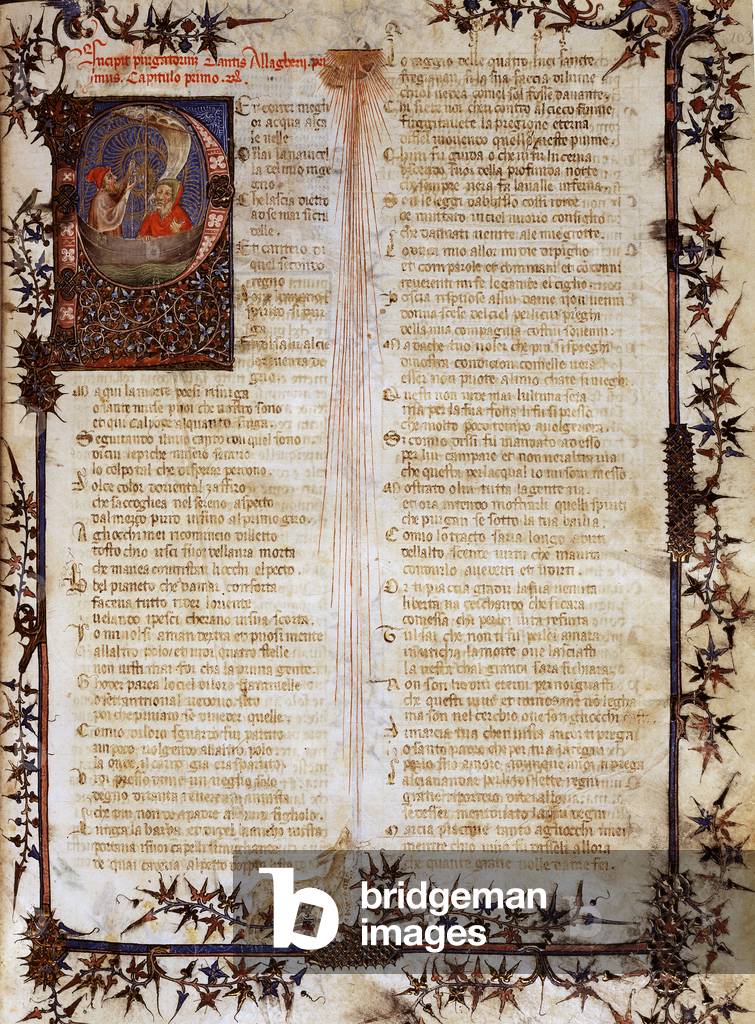 Incipit purgatorium Dantis Allagherii pri
mus. Capitulo primo.
Er correr megli
or acqua alça
le uele
che lascia dietro
a o se mar si cru
dele.
quel secondo
regno
Ma qui la morte poesi
o sante muse poi che uostro sono
et qui caliope alquanto surga.
Seguitando il mio canto con quel sono
di cui le piche misere
lo colpo tal che disperar perdono.
Dolce color doriental zaffiro
che saccoglieua nel sereno aspecto
dal meço puro infino al primo giro
A gliocchi miei ricomincio dilletto
tosto chio usci fuor dellaura morta
che mauea contristati liocchi el pecto.
Lo bel pianeto che damar conforta
faceua tutto rider loriente
uelando i pesci cherano in sua scorta.
Io mi uolsi a man dextra et puosi mente
allaltro polo et uidi quatro stelle
non uiste mai for cha la prima gente.
Goder parea lo ciel di loro fiammelle
o settentrional uedouo sito
poi che priuato se di ueder quelle.
Como
un poco uolgendo allaltro polo
la onde il carro gia era sparito
Vidi presso di me un ueglio solo
degno di tanta reuerença in uista
che piu non de a padre alcun figliolo.
Lunga la barba et di pel bianco mista
portaua
de quai cadeua al pecto doppia lista
Lo raggio delle quatro luci sancte
fregiauan si la sua faccia di lume
chiol uedea comel sol fosse dauante.
Chi siete uoi che contro al cieco fiume
fuggito auete la pregione eterna
diss el mouendo quelle oneste piume.
Chi ui guida o che ui fu lucerna
uscendo fuor della profonda notte
che sempre nera fa la ualle inferna.
Son le leggi dabisso cosi rotte
o e mutato in ciel nuouo consiglio
che dannati uenite alle mie grotte.
Lo duca mio allor mi die di piglio
et con parole et con mani et con cenni
reuerenti mi fe le gambe el ciglio.
Poscia rispuose a lui da me non uenni
donna scese del ciel per li cui preghi
della mia compagnia costui souenni.
Ma da che tuo uoler che piu si spieghi
di nostra condicion
esser non puote al mio chate si nieghi.
Questi non uide mai lultima sera
ma per la sua follia li fu si presso
che molto poco tempo auolgerera.
Si como dissi fui mandato ad esso
per lui campare et non nera altra uia
che questa per la qual io mi son messo
Mostrato o lui tutta la gente ria.
et ora intendo mostrarli quelli spirti
che purgan se sotto la tua balia.
Comio lo tracto saria longo a dirti
dellalto scende uirtu che maiuta
conducerlo a uederti et uderti.
Or ti piaccia gradir la sua uenuta
liberta ua cerchando che si cara
come sa chi per lei uita refiuta
Tu lsai che non ti fu per lei amara
in utica la morte oue lasciasti
la uesta chal gran di sara si chiara.
Non son li editi eterni per noi guasti
che questi uiue et minos me non legha
ma son nel cerchio oue son gliocchi casti
di marcia tua chen uista ancor ti prega
o santo pecto che per tua la tegni
per lo suo amore adunque a noi ti piega
Lasciane andar per li toi sette regni
gratie riportero di te a llei
se desser menzonato laggiu degni
Marcia piacque tanto agliocchi miei
mentre chio fui di la dissel allora
che quante gratie uolle da me fei.
bridgeman
images